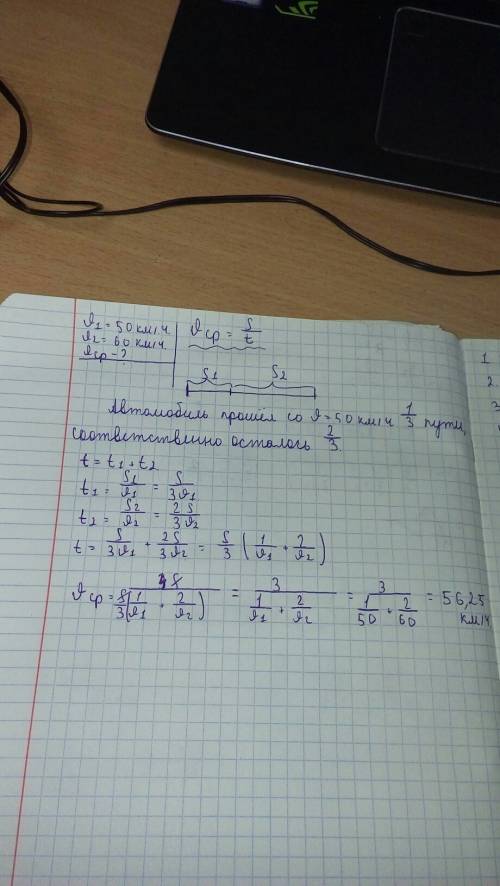 υ1 = 50 км/ч.
υ2 = 60 км/ч.
υср - ?
υср = S/t
S1 S2
Автомобиль прошёл со υ = 50 км/ч 1/3 пути,
соответственно осталось 2/3.
t = t1 + t2
t1 = S1/υ1 = S/3υ1
t2 = S2/υ2 = 2S/3υ2
t = S/3υ1 + 2S/3υ2 = S/3 (1/υ1 + 2/υ2)
υср = S/(S/3(1/υ1 + 2/υ2)) = 3/(1/υ1 + 2/υ2) = 3/(1/50 + 2/60) = 56,25
км/ч
1
2